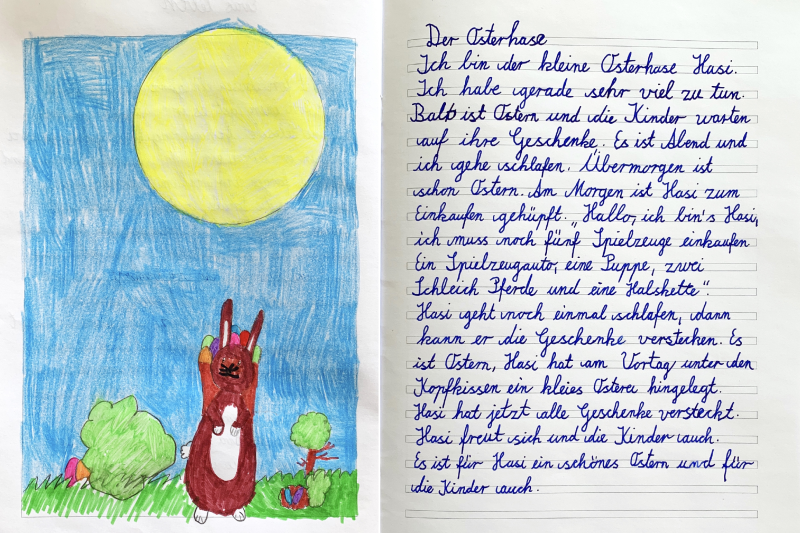 Der Osterhase
Ich bin der kleine Osterhase Hasi.
Ich habe gerade sehr viel zu tun.
Bald ist Ostern und die Kinder warten
auf ihre Geschenke. Es ist Abend und
ich gehe schlafen. Übermorgen ist
schon Ostern. Am Morgen ist Hasi zum
Einkaufen gehüpft. "Hallo, ich bin's Hasi,
ich muss noch fünf Spielzeuge einkaufen
Ein Spielzeugauto, eine Puppe, zwei
Schleich Pferde und eine Halskette".
Hasi geht noch einmal schlafen, dann
kann er die Geschenke verstecken. Es
ist Ostern, Hasi hat am Vortag unter den
Kopfkissen ein kleies Osterei hingelegt.
Hasi hat jetzt alle Geschenke versteckt.
Hasi freut sich und die Kinder auch.
Es ist für Hasi ein schönes Ostern und für
die Kinder auch.